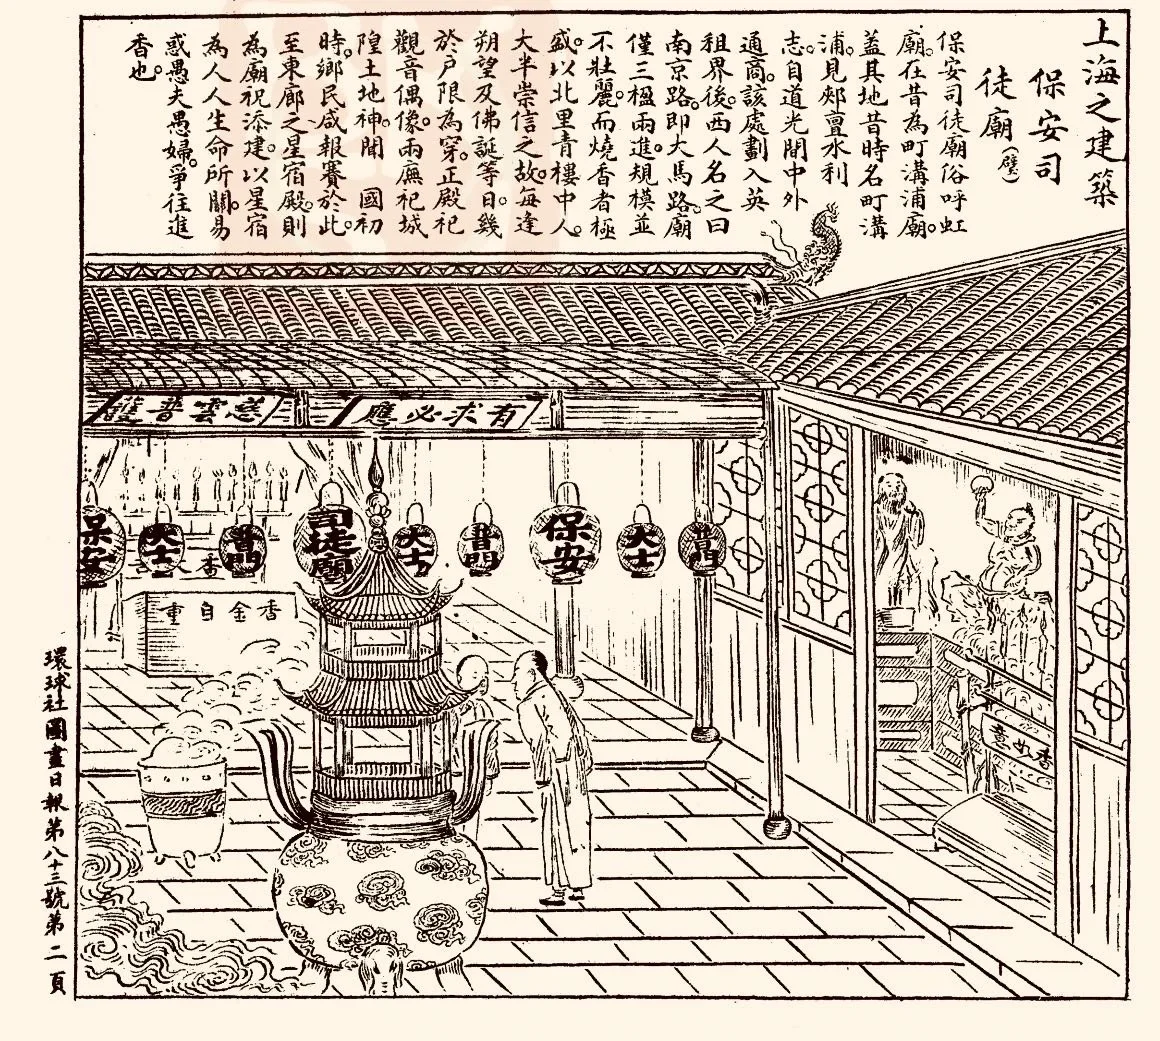 上海之建築
保安司
徒廟(壁)
保安司徒廟俗呼虹
廟。在昔為町溝浦廟。
蓋其地昔時名町溝
浦。見郟亶水利
志。自道光間中外
通商。該處劃入英
租界後。西人名之曰
南京路。即大馬路。廟
僅三楹兩進。規模並
不壯麗。而燒香者極
盛。以北里青樓中人。
大半崇信之故。每逢
朔望及佛誕等日。幾
於戶限為穿。正殿祀
觀音偶像。兩廡祀城
隍土地神。聞　國初
時。鄉民咸報賽於此。
至東廊之星宿殿。則
為廟祝添建。以星宿
為人人生命所關。易
惑愚夫愚婦。爭往進
香也。
有求必應
慈雲普護
普門
大士
保安
普門
大士
司徒廟
普門
大士
保安
香金自重
香如意
環球社圖畫日報第八十三號第二頁